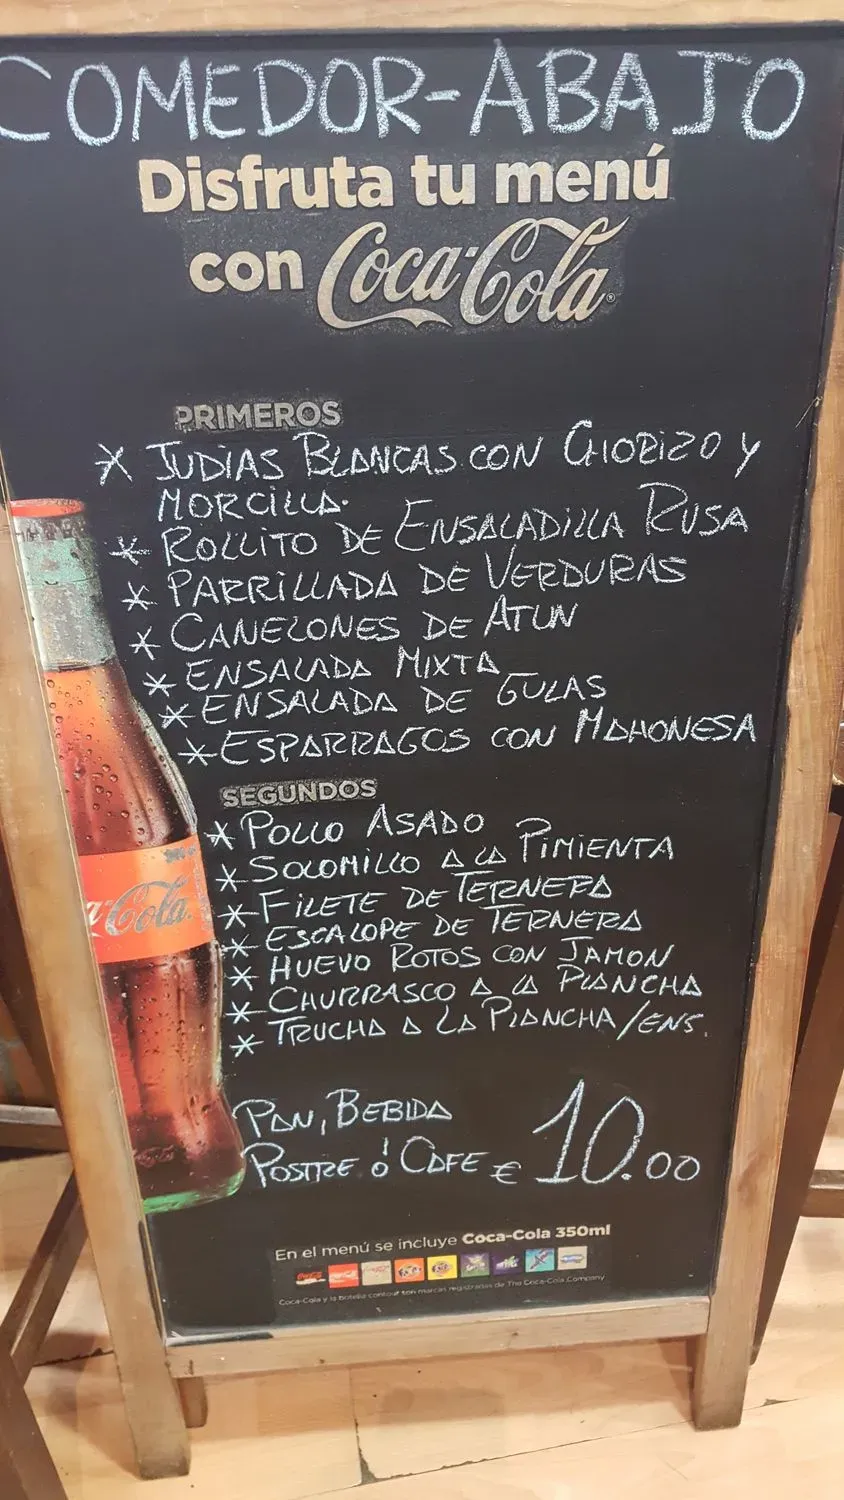 COMEDOR-ABAJO
Disfruta tu menú
con Coca-Cola
PRIMEROS
* JUDIAS BLANCAS CON CHORIZO Y
MORCILLA.
* ROLLITO DE ENSALADILLA RUSA
* PARRILLADA DE VERDURAS
* CANELONES DE ATUN
* ENSALADA MIXTA
* ENSALADA DE GULAS
* ESPARRAGOS CON MAHONESA
SEGUNDOS
* POLLO ASADO
* SOLOMILLO A LA PIMIENTA
* FILETE DE TERNERA
* ESCALOPE DE TERNERA
* HUEVO ROTOS CON JAMON
* CHURRASCO A LA PLANCHA
* TRUCHA A LA PLANCHA/ENS.
a-Cola
PAN, BEBIDA
POSTRE ó CAFE € 10.00
En el menú se incluye Coca-Cola 350ml
Coca-Cola y la botella contour son marcas registradas de The Coca-Cola Company